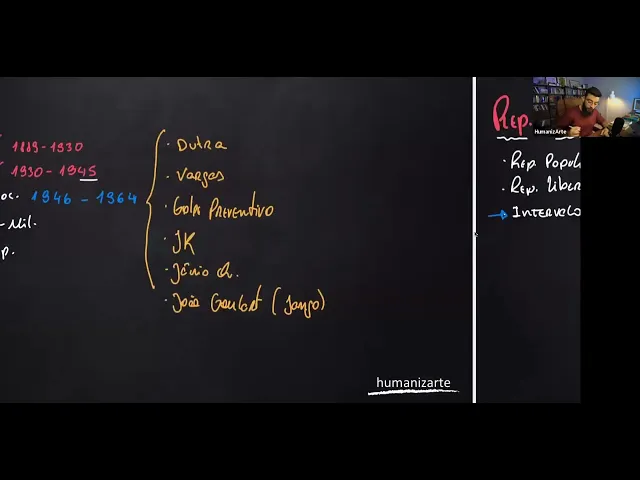 1889-1930
1930-1945
oc. 1946 - 1964
-Mil.
p.
· Dutra
· Vargas
· Golpe Preventivo
· JK
· Jânio Q.
· João Goulart (Jango)
humanizarte
Rep.
· Rep. Popul
· Rep. Liber
→ Intervalo
HumanizArte